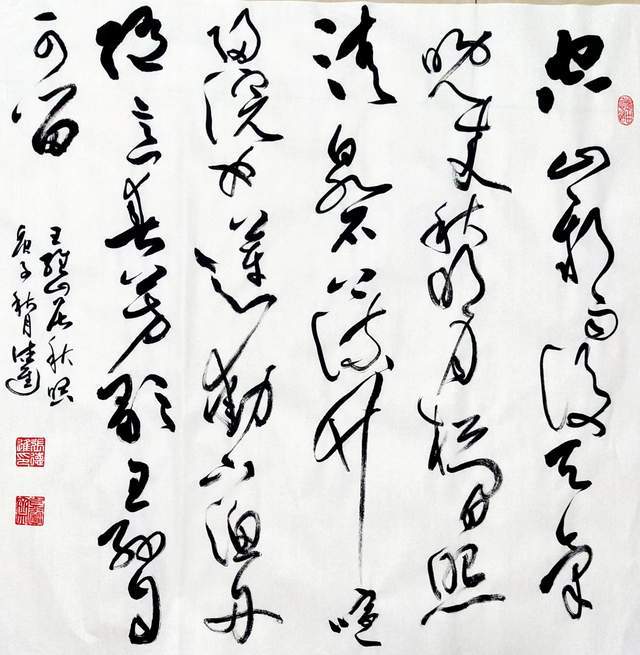 空山新雨後天氣
晚来秋明月松間照
清泉石上流竹喧
歸浣女蓮動下漁舟
随意春芳歇王孫自
可留
王維山居秋暝
庚子秋月